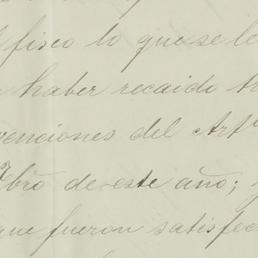 fisco lo que se le
haber recaido
venciones del Art
bro de este año;
que fueron satisfec